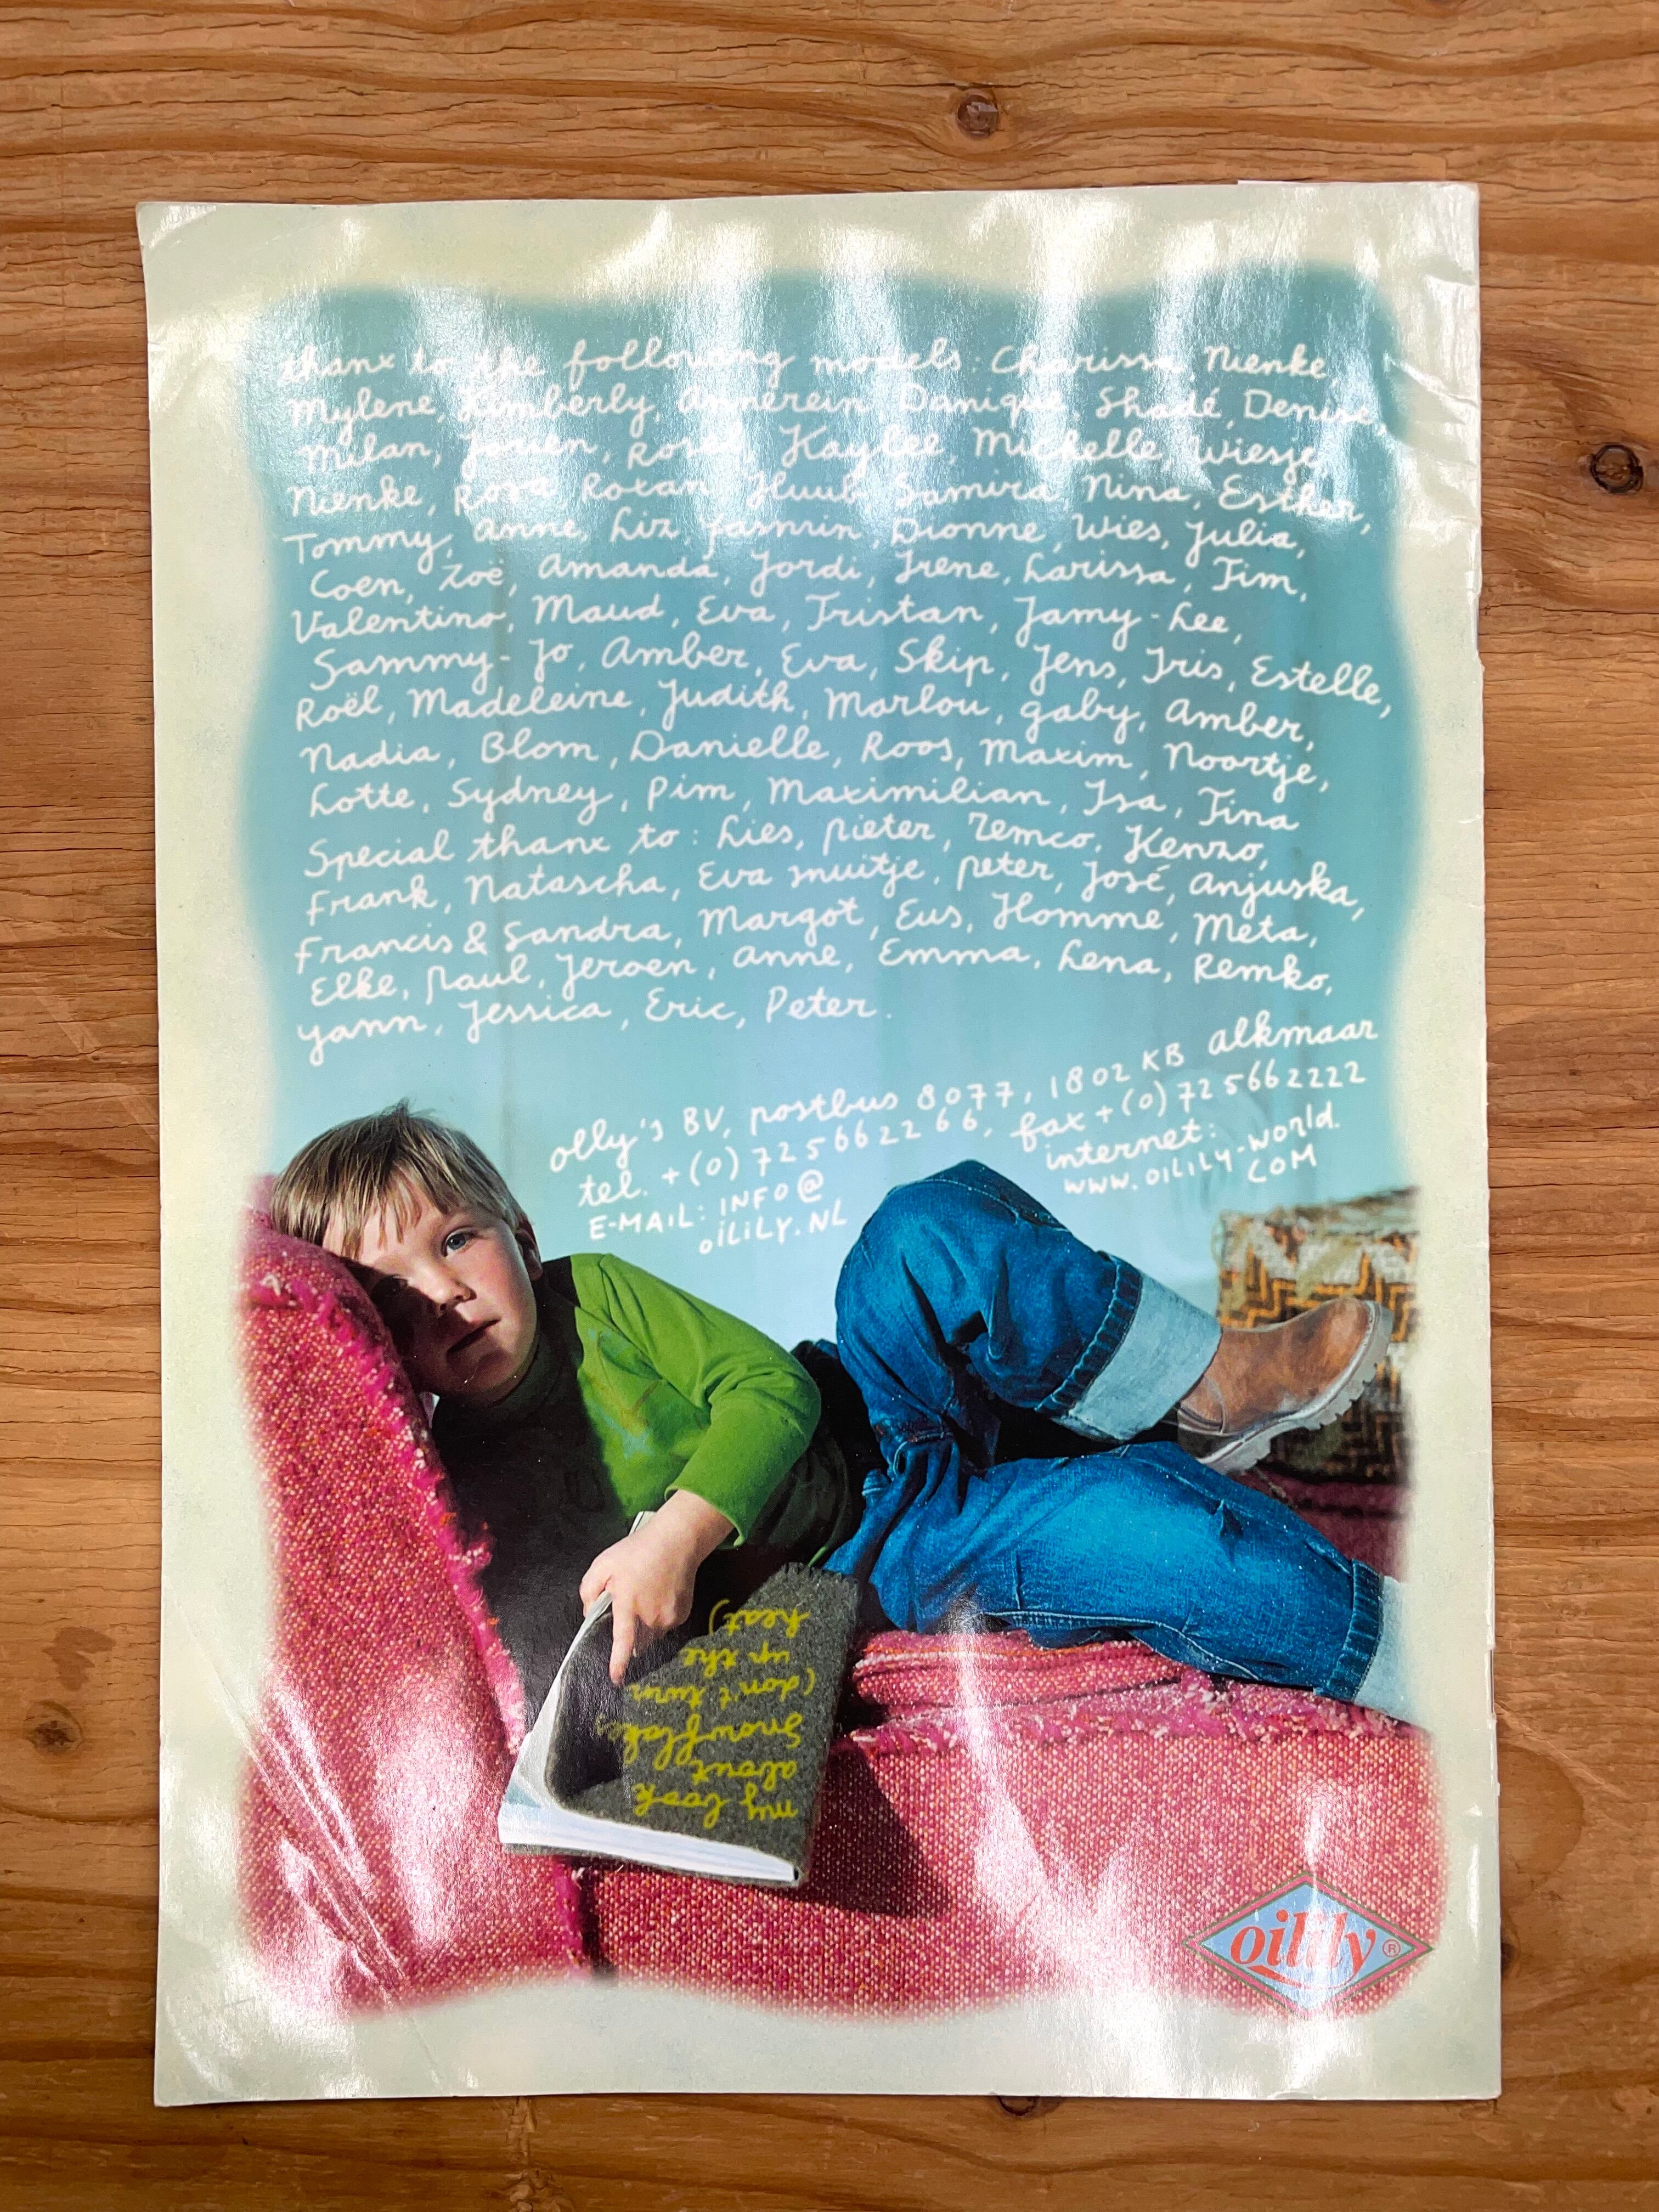 thanx to the following models: Charissa, Nienke,
Mylene, Kimberly, Annerein, Danique, Shadé, Denise,
Milan, Rosa, Kaylee, Michelle, Wiesje,
Nienke, Rosa, Roxan, Huub, Samira, Nina, Esther,
Tommy, Anne, Liz, Yasmin, Dionne, Wies, Julia,
Coen, Zoë, Amanda, Jordi, Irene, Larissa, Tim,
Valentino, Maud, Eva, Tristan, Jamy-Lee,
Sammy-Jo, Amber, Eva, Skip, Jens, Iris, Estelle,
Roël, Madeleine, Judith, Marlou, Gaby, Amber,
Nadia, Blom, Danielle, Roos, Maxim, Noortje,
Lotte, Sydney, Pim, Maximilian, Isa, Tina
Special thanx to: Lies, Pieter, Remco, Kenzo,
Frank, Natascha, Eva Muitje, Peter, José, Anjuska,
Francis & Sandra, Margot, Eus, Homme, Meta,
Elke, Paul, Jeroen, Anne, Emma, Lena, Remko,
Yann, Jessica, Eric, Peter.
olly's BV, postbus 8077, 1802 KB alkmaar
tel. +(0) 72 5662266, fax +(0) 72 5662222
E-MAIL: INFO@
OILILY.NL
internet:
WWW.OILILY-WORLD.
COM
my book
about
Snowflakes
(don't turn
up the
heat)
oilily®